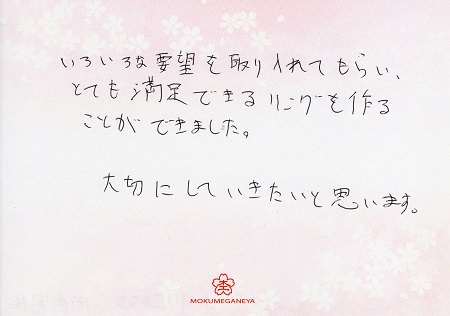 いろいろな要望を取り入れてもらい、
とても満足できるリングを作る
ことができました。
大切にしていきたいと思います。
MOKUMEGANEYA